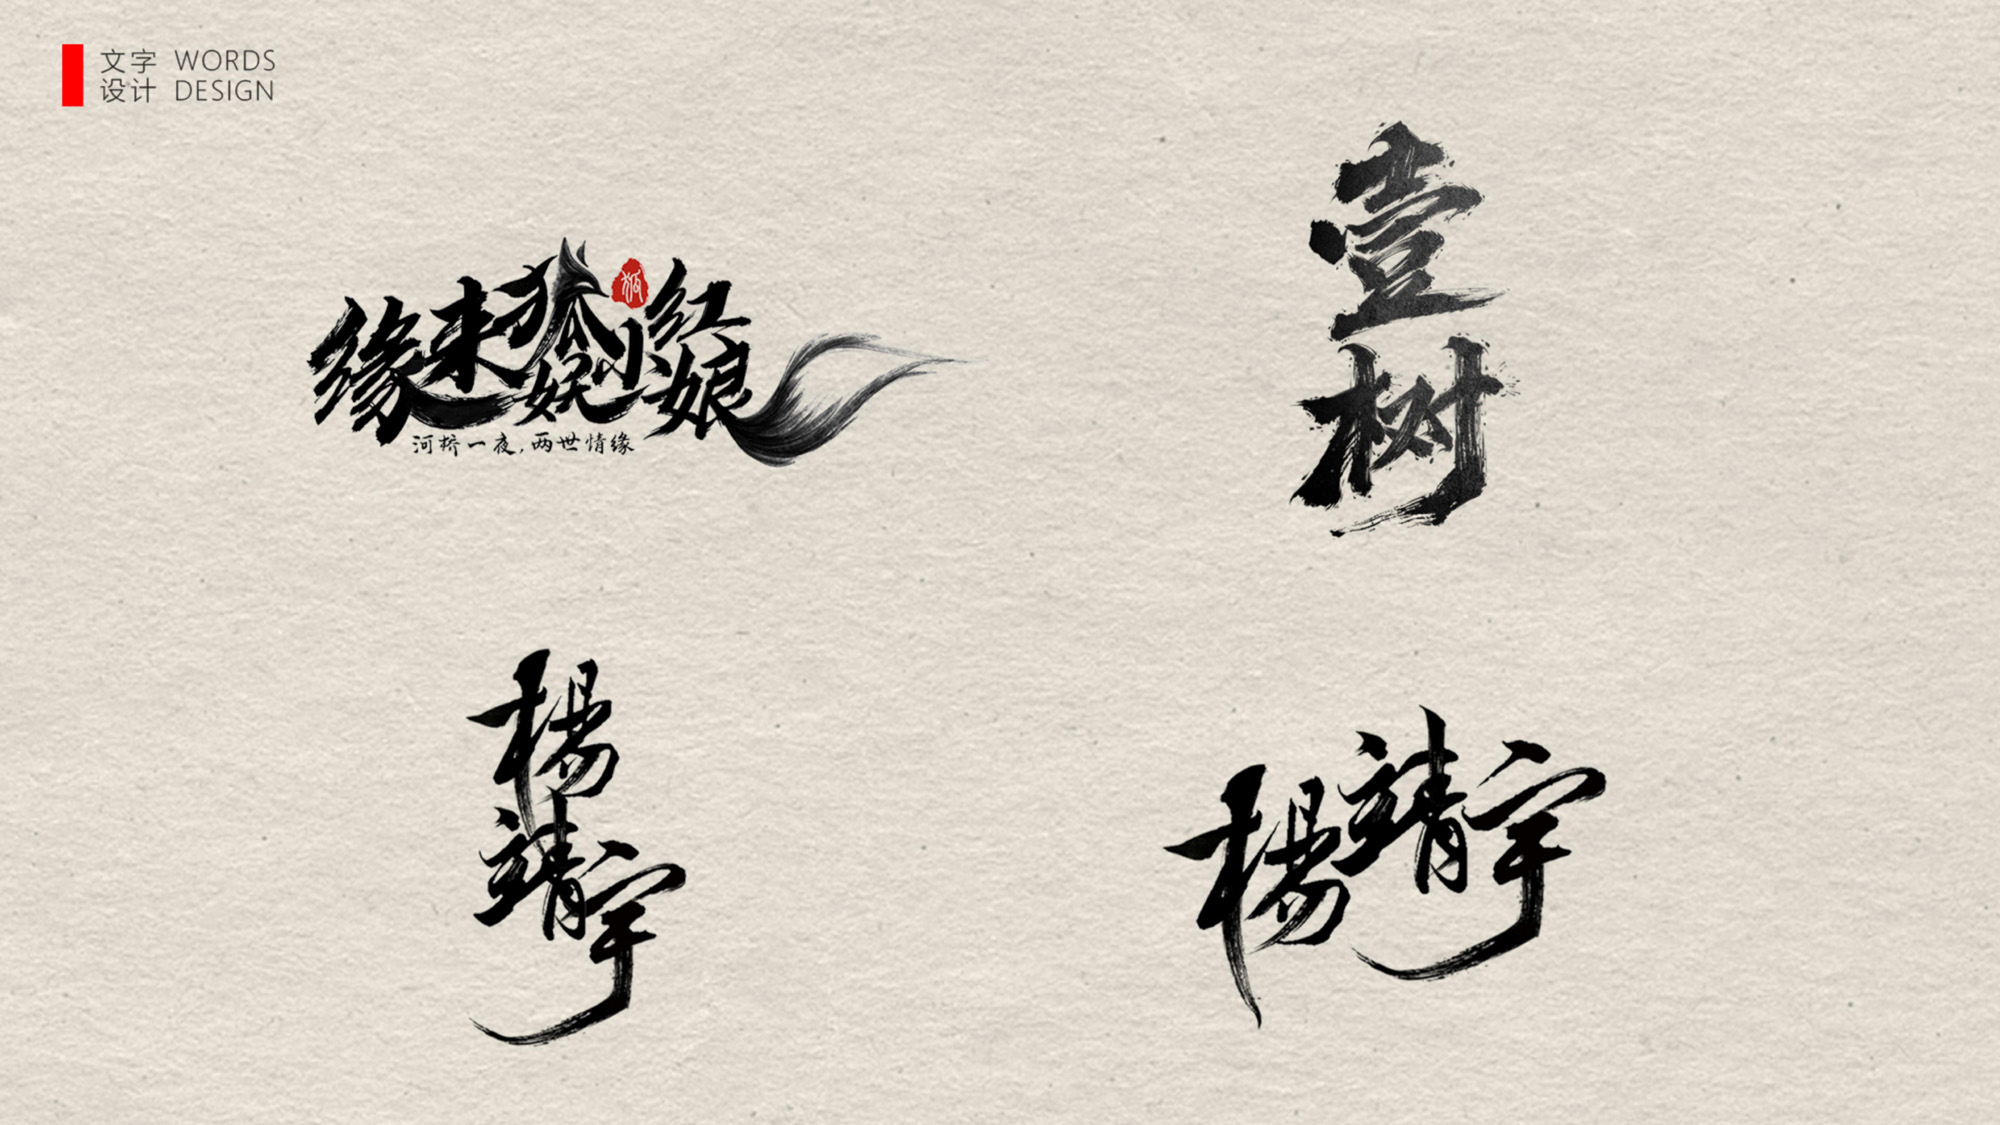 文字 WORDS
设计 DESIGN
缘来狐妖小红娘
狐
河桥一夜，两世情缘
壹树
楊靖宇
楊靖宇